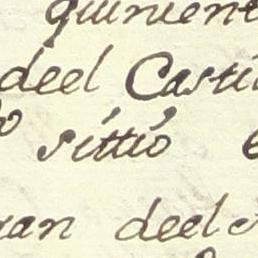 quinient
deel Casti
sittio
an deel